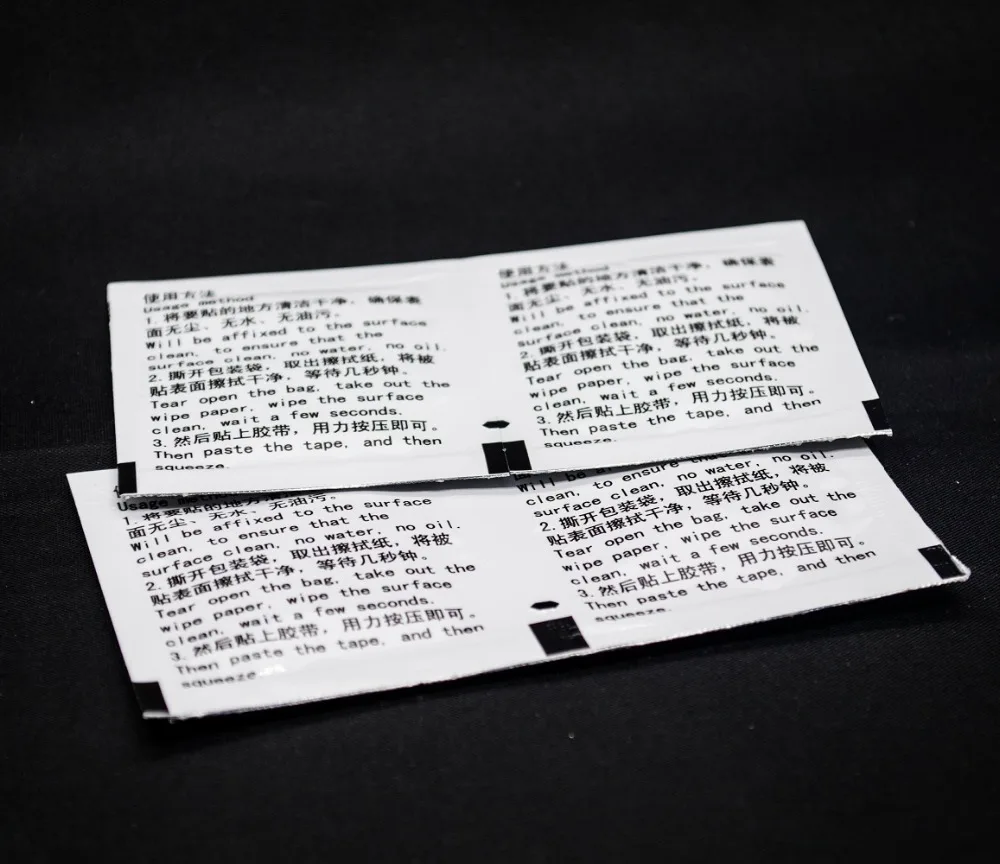 使用方法
Usage method
1. 将要贴的地方清洁干净，确保表
面无尘、无水、无油污。
Will be affixed to the surface
clean, to ensure that the
surface clean, no water, no oil.
2. 撕开包装袋，取出擦拭纸，将被
贴表面擦拭干净，等待几秒钟。
Tear open the bag, take out the
wipe paper, wipe the surface
clean, wait a few seconds.
3. 然后贴上胶带，用力按压即可。
Then paste the tape, and then
squeeze.
使用方法
Usage method
1. 将要贴的地方清洁干净，确保表
面无尘、无水、无油污。
Will be affixed to the surface
clean, to ensure that the
surface clean, no water, no oil.
2. 撕开包装袋，取出擦拭纸，将被
贴表面擦拭干净，等待几秒钟。
Tear open the bag, take out the
wipe paper, wipe the surface
clean, wait a few seconds.
3. 然后贴上胶带，用力按压即可。
Then paste the tape, and then
squeeze.
Usage
1. 将要贴的地方清
面无尘、无水、无油污。
Will be affixed to the surface
clean, to ensure that the
surface clean, no water, no oil.
2. 撕开包装袋，取出擦拭纸，将被
贴表面擦拭干净，等待几秒钟。
Tear open the bag, take out the
wipe paper, wipe the surface
clean, wait a few seconds.
3. 然后贴上胶带，用力按压即可。
Then paste the tape, and then
squeeze
Will be
clean, to ensure
surface clean, no water, no oil.
2. 撕开包装袋，取出擦拭纸，将被
贴表面擦拭干净，等待几秒钟。
Tear open the bag, take out the
wipe paper, wipe the surface
clean, wait a few seconds.
3. 然后贴上胶带，用力按压即可。
Then paste the tape, and then
squeeze.